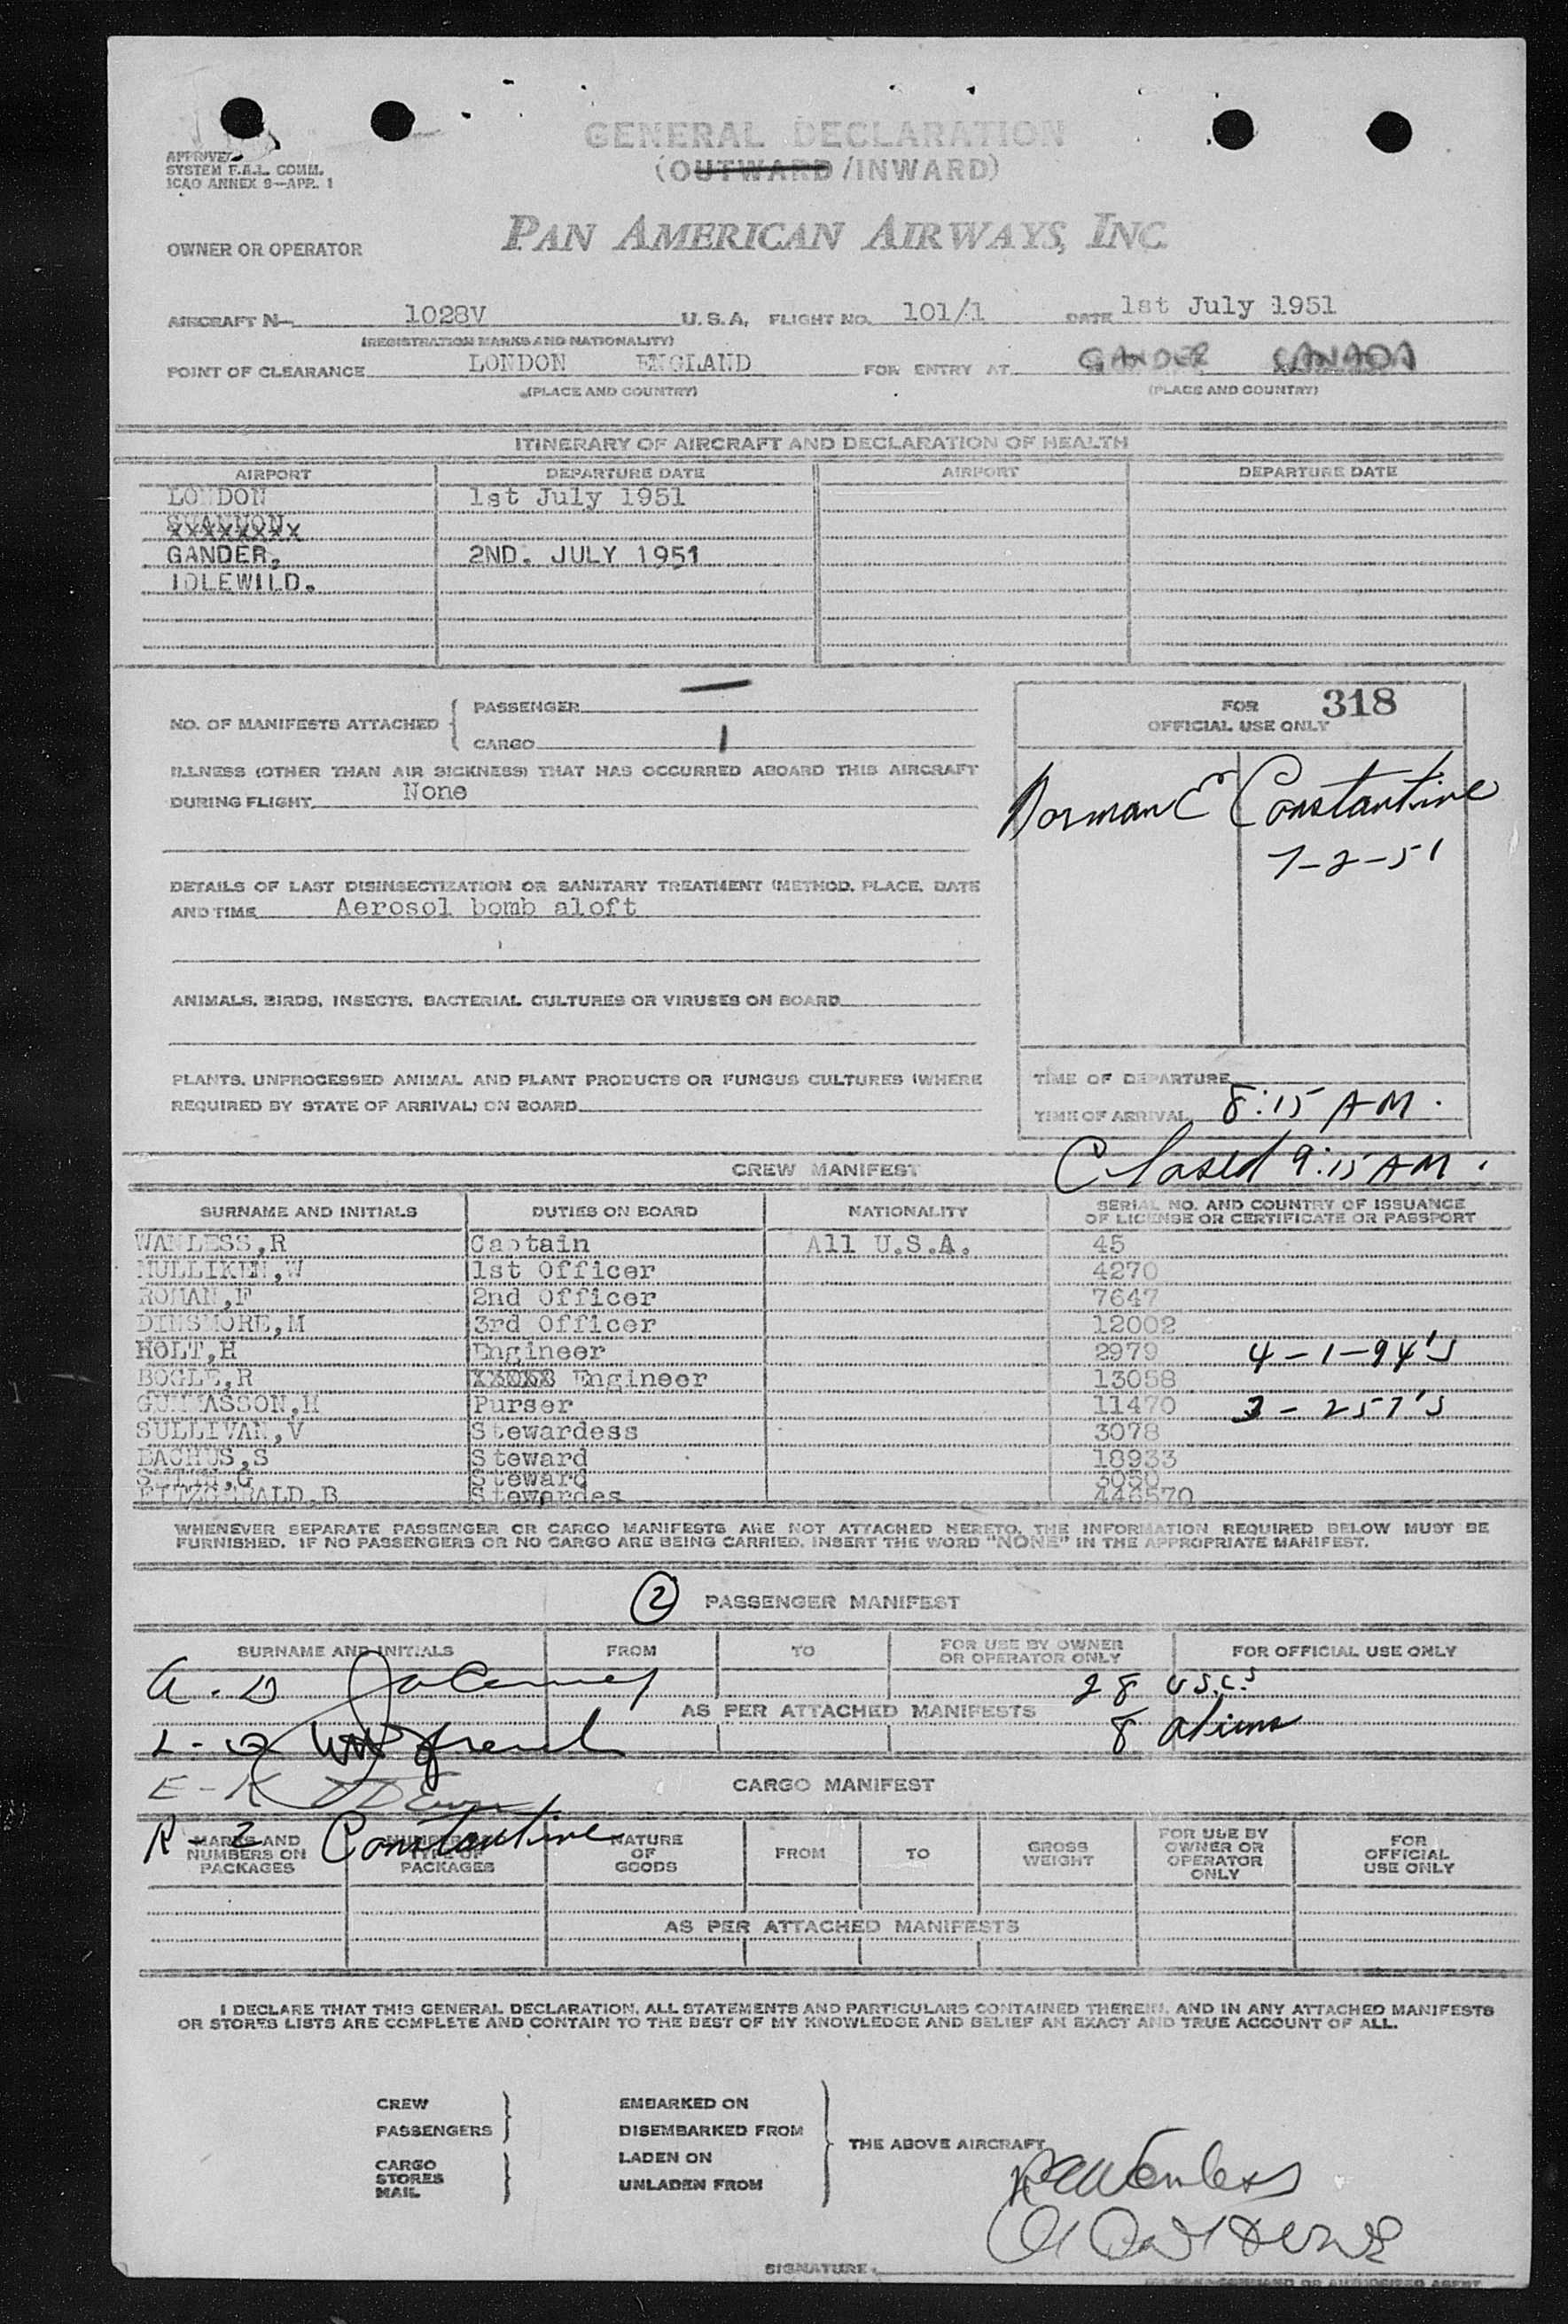 APPROVED
SYSTEM F.A.L. COMM.
ICAO ANNEX 9—APP. 1
GENERAL DECLARATION
(OUTWARD/INWARD)
OWNER OR OPERATOR PAN AMERICAN AIRWAYS, INC.
AIRCRAFT N— 1028V U.S.A. FLIGHT NO. 101/1 DATE 1st July 1951
(REGISTRATION MARKS AND NATIONALITY)
POINT OF CLEARANCE LONDON ENGLAND FOR ENTRY AT GANDER CANADA
(PLACE AND COUNTRY) (PLACE AND COUNTRY)
ITINERARY OF AIRCRAFT AND DECLARATION OF HEALTH
AIRPORT DEPARTURE DATE AIRPORT DEPARTURE DATE
LONDON 1st July 1951
SHANNON
GANDER, 2ND. JULY 1951
IDLEWILD.
NO. OF MANIFESTS ATTACHED { PASSENGER —
CARGO 1
FOR 318
OFFICIAL USE ONLY
Norman E Constantine
7-2-51
ILLNESS (OTHER THAN AIR SICKNESS) THAT HAS OCCURRED ABOARD THIS AIRCRAFT
DURING FLIGHT None
DETAILS OF LAST DISINSECTIZATION OR SANITARY TREATMENT (METHOD, PLACE, DATE
AND TIME Aerosol bomb aloft
ANIMALS, BIRDS, INSECTS, BACTERIAL CULTURES OR VIRUSES ON BOARD
PLANTS, UNPROCESSED ANIMAL AND PLANT PRODUCTS OR FUNGUS CULTURES (WHERE
REQUIRED BY STATE OF ARRIVAL) ON BOARD
TIME OF DEPARTURE
TIME OF ARRIVAL 8:15 AM.
Closed 9:15 AM.
CREW MANIFEST
SURNAME AND INITIALS DUTIES ON BOARD NATIONALITY SERIAL NO. AND COUNTRY OF ISSUANCE
OF LICENSE OR CERTIFICATE OR PASSPORT
WANLESS,R Captain All U.S.A. 45
MULLIKEN,W 1st Officer 4270
ROMAN,F 2nd Officer 7647
DINSMORE,M 3rd Officer 12002
HOLT,H Engineer 2979 4-1-94's
BOGLE,R Engineer 13058
Purser 11470 3-257's
SULLIVAN,V Stewardess 3078
BACHUS,S Steward 18933
SMITH,G Steward 3050
FITZGERALD,B Stewardes 446570
WHENEVER SEPARATE PASSENGER OR CARGO MANIFESTS ARE NOT ATTACHED HERETO, THE INFORMATION REQUIRED BELOW MUST BE
FURNISHED. IF NO PASSENGERS OR NO CARGO ARE BEING CARRIED, INSERT THE WORD "NONE" IN THE APPROPRIATE MANIFEST.
2 PASSENGER MANIFEST
SURNAME AND INITIALS FROM TO FOR USE BY OWNER
OR OPERATOR ONLY FOR OFFICIAL USE ONLY
A-D 28 USC's
AS PER ATTACHED MANIFESTS
L-Q 8 Aliens
E-K
CARGO MANIFEST
R-Z Constantine
MARKS AND
NUMBERS ON
PACKAGES NUMBER AND
TYPE OF
PACKAGES NATURE
OF
GOODS FROM TO GROSS
WEIGHT FOR USE BY
OWNER OR
OPERATOR
ONLY FOR
OFFICIAL
USE ONLY
AS PER ATTACHED MANIFESTS
I DECLARE THAT THIS GENERAL DECLARATION, ALL STATEMENTS AND PARTICULARS CONTAINED THEREIN, AND IN ANY ATTACHED MANIFESTS
OR STORES LISTS ARE COMPLETE AND CONTAIN TO THE BEST OF MY KNOWLEDGE AND BELIEF AN EXACT AND TRUE ACCOUNT OF ALL.
CREW
PASSENGERS
CARGO
STORES
MAIL
EMBARKED ON
DISEMBARKED FROM
LADEN ON
UNLADEN FROM
THE ABOVE AIRCRAFT
Wanless
SIGNATURE